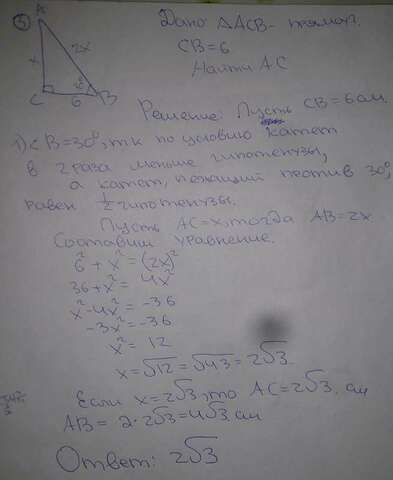 5
A
Дано: △ACB - прямоуг.
2x
CB=6
x
Найти AC
C 6 B
Решение: Пусть CB=6 см.
1) < B=30°, т к по условию катет
в 2 раза меньше гипотенузы,
а катет, лежащий против 30°,
равен 1/2 гипотенузы.
Пусть AC=x, тогда AB=2x.
Составим уравнение.
6² + x² = (2x)²
36+x² = 4x²
x²-4x² = -36
-3x² = -36
x² = 12
x=√12 = √4·3 = 2√3
Если x=2√3, то AC=2√3 см
AB = 2·2√3=4√3 см
Ответ: 2√3